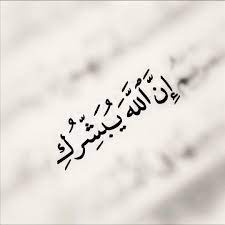 إِنَّ ٱللَّهَ يُبَشِّرُكِ